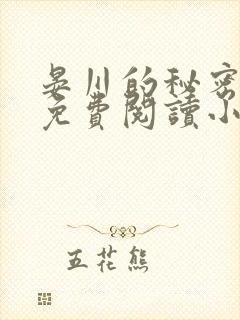 晏川的秘密
免費閱讀小
五花熊